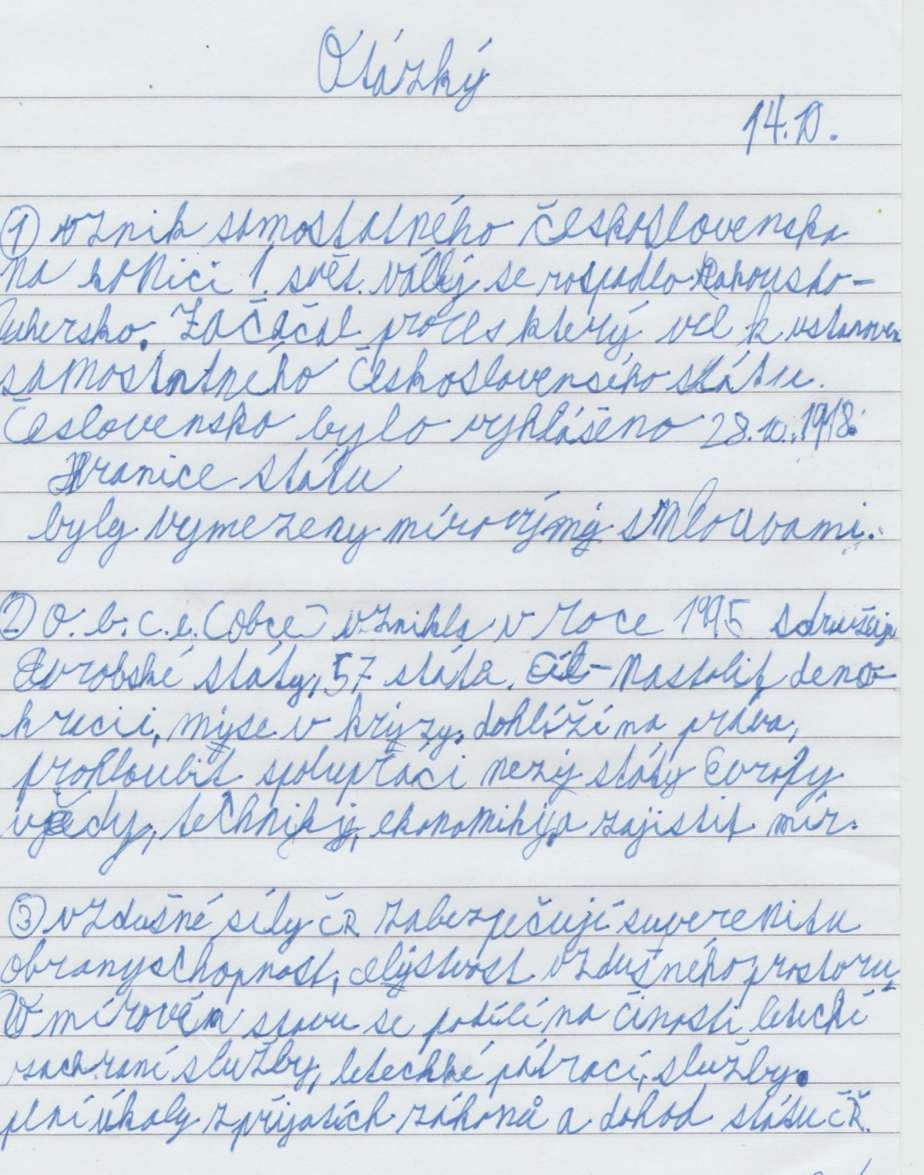 Otázký
14.10.
① vznik samostatného československa
na konici 1. svět. války se rospadlo Rakousko-
uhersko. Začačal proces který vel k ustanoven
samostatného Československého státu.
Česlovensko bylo vyhlášeno 28.10.1918.
Hranice státu
byly vymezeny mírovými smlouvami.
② O.b.c.e. (Obce) vznikla v roce 1995 sdružuje
Evrobské státy, 57 státa. Cíl- Nastolit demo-
kracii, v krýzy, dohlíží na práva,
prohloubit spolupráci nezý státy Evropy
vědy, techniky, ekonomiky a zajistit mír.
③ vzdušné síly ČR zabezpečují suverenitu
obranyschopnost, celistvost vzdušného prostoru,
V mírovém stavu se podílí na činosti letecké
zachraní služby, letecké pátrací, služby.
plní úkoly z přijatích zákonů a dohod státu ČR.